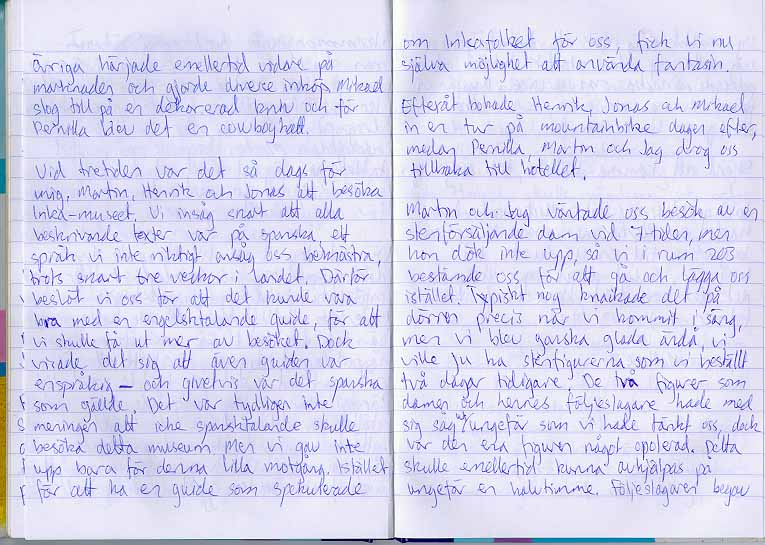 övriga härjade emellertid vidare på
marknaden och gjorde diverse inköp. Mikael
slog till på en dekorerad kniv och för
Pernilla blev det en cowboyhatt.
Vid tretiden var det så dags för
mig, Martin, Henrik och Jonas att besöka
Inka-museet. Vi insåg snart att alla
beskrivande texter var på spanska, ett
språk vi inte riktigt ansåg oss behärska,
trots snart tre veckor i landet. Därför
beslöt vi oss för att det kunde vara
bra med en engelsktalande guide, för att
vi skulle få ut mer av besöket. Dock
visade det sig att även guiden var
enspråkig – och givetvis var det spanska
som gällde. Det var tydligen inte
meningen att icke spansktalande skulle
besöka detta museum men vi gav inte
upp bara för denna lilla motgång. Istället
för att ha en guide som spekulerade
om Inkafolket för oss, fick vi nu
själva möjlighet att använda fantasin.
Efteråt bokade Henrik, Jonas och Mikael
in en tur på mountainbike dagen efter,
medan Pernilla, Martin och jag drog oss
tillbaka till hotellet.
Martin och jag väntade oss besök av en
stenförsäljande dam vid 7-tiden, men
hon dök inte upp, så vi i rum 203
bestämde oss för att gå och lägga oss
istället. Typiskt nog knackade det på
dörren precis när vi kommit i säng,
men vi blev ganska glada ändå, vi
ville ju ha stenfigurerna som vi beställt
två dagar tidigare. De två figurer som
damen och hennes följeslagare hade med
sig såg ut ungefär som vi hade tänkt oss, dock
var den ena figuren något opolerad. Detta
skulle emellertid kunna avhjälpas på
ungefär en halvtimme. Följeslagaren begav